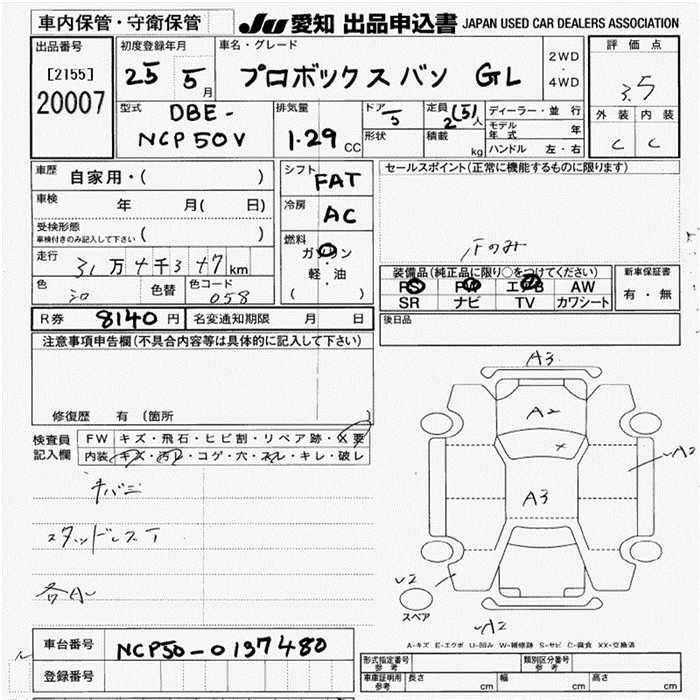 車内保管・守衛保管
JU 愛知 出品申込書 JAPAN USED CAR DEALERS ASSOCIATION
出品番号
[2155]
20007
初度登録年月
25 5月
車名・グレード
プロボックスバン GL
2WD
・
4WD
評価点
3.5
外装 内装
C C
型式
DBE-
NCP50V
排気量
1.29 CC
ドア
5
形状
定員
2(5)人
積載 kg
ディーラー・並行
モデル年式 年
ハンドル 左・右
車歴
自家用・( )
車検 年 月( 日)
受検形態
車検付きのみ記入して下さい ( )
走行 31万4千3十7km
色 色替 色コード
058
シフト
FAT
冷房
AC
燃料
ガソリン
軽・油
( )
セールスポイント(正常に機能するものに限ります)
Fのみ
装備品(純正品に限り○をつけてください)
PS PW エアB AW
SR ナビ TV カワシート
新車保証書
有・無
後日品
R券 8140円 名変通知期限 月 日
注意事項申告欄(不具合内容等は具体的に記入して下さい)
修復歴 有〔箇所 〕
検査員
記入欄
FW キズ・飛石・ヒビ割・リペア跡・X要
内装 キズ・汚レ・コゲ・穴・スレ・キレ・破レ
キバミ
スタッドレスT
各AU
A3
A2
A3
A2
U2
スペア
A2
A-キズ E-エクボ U-凹み W-補修跡 S-サビ C-腐食 XX-交換済
車台番号 NCP50-0137480
登録番号
形式指定番号
参考
類別区分番号
参考
車庫証明用
参考
長さ cm 幅 cm 高さ cm